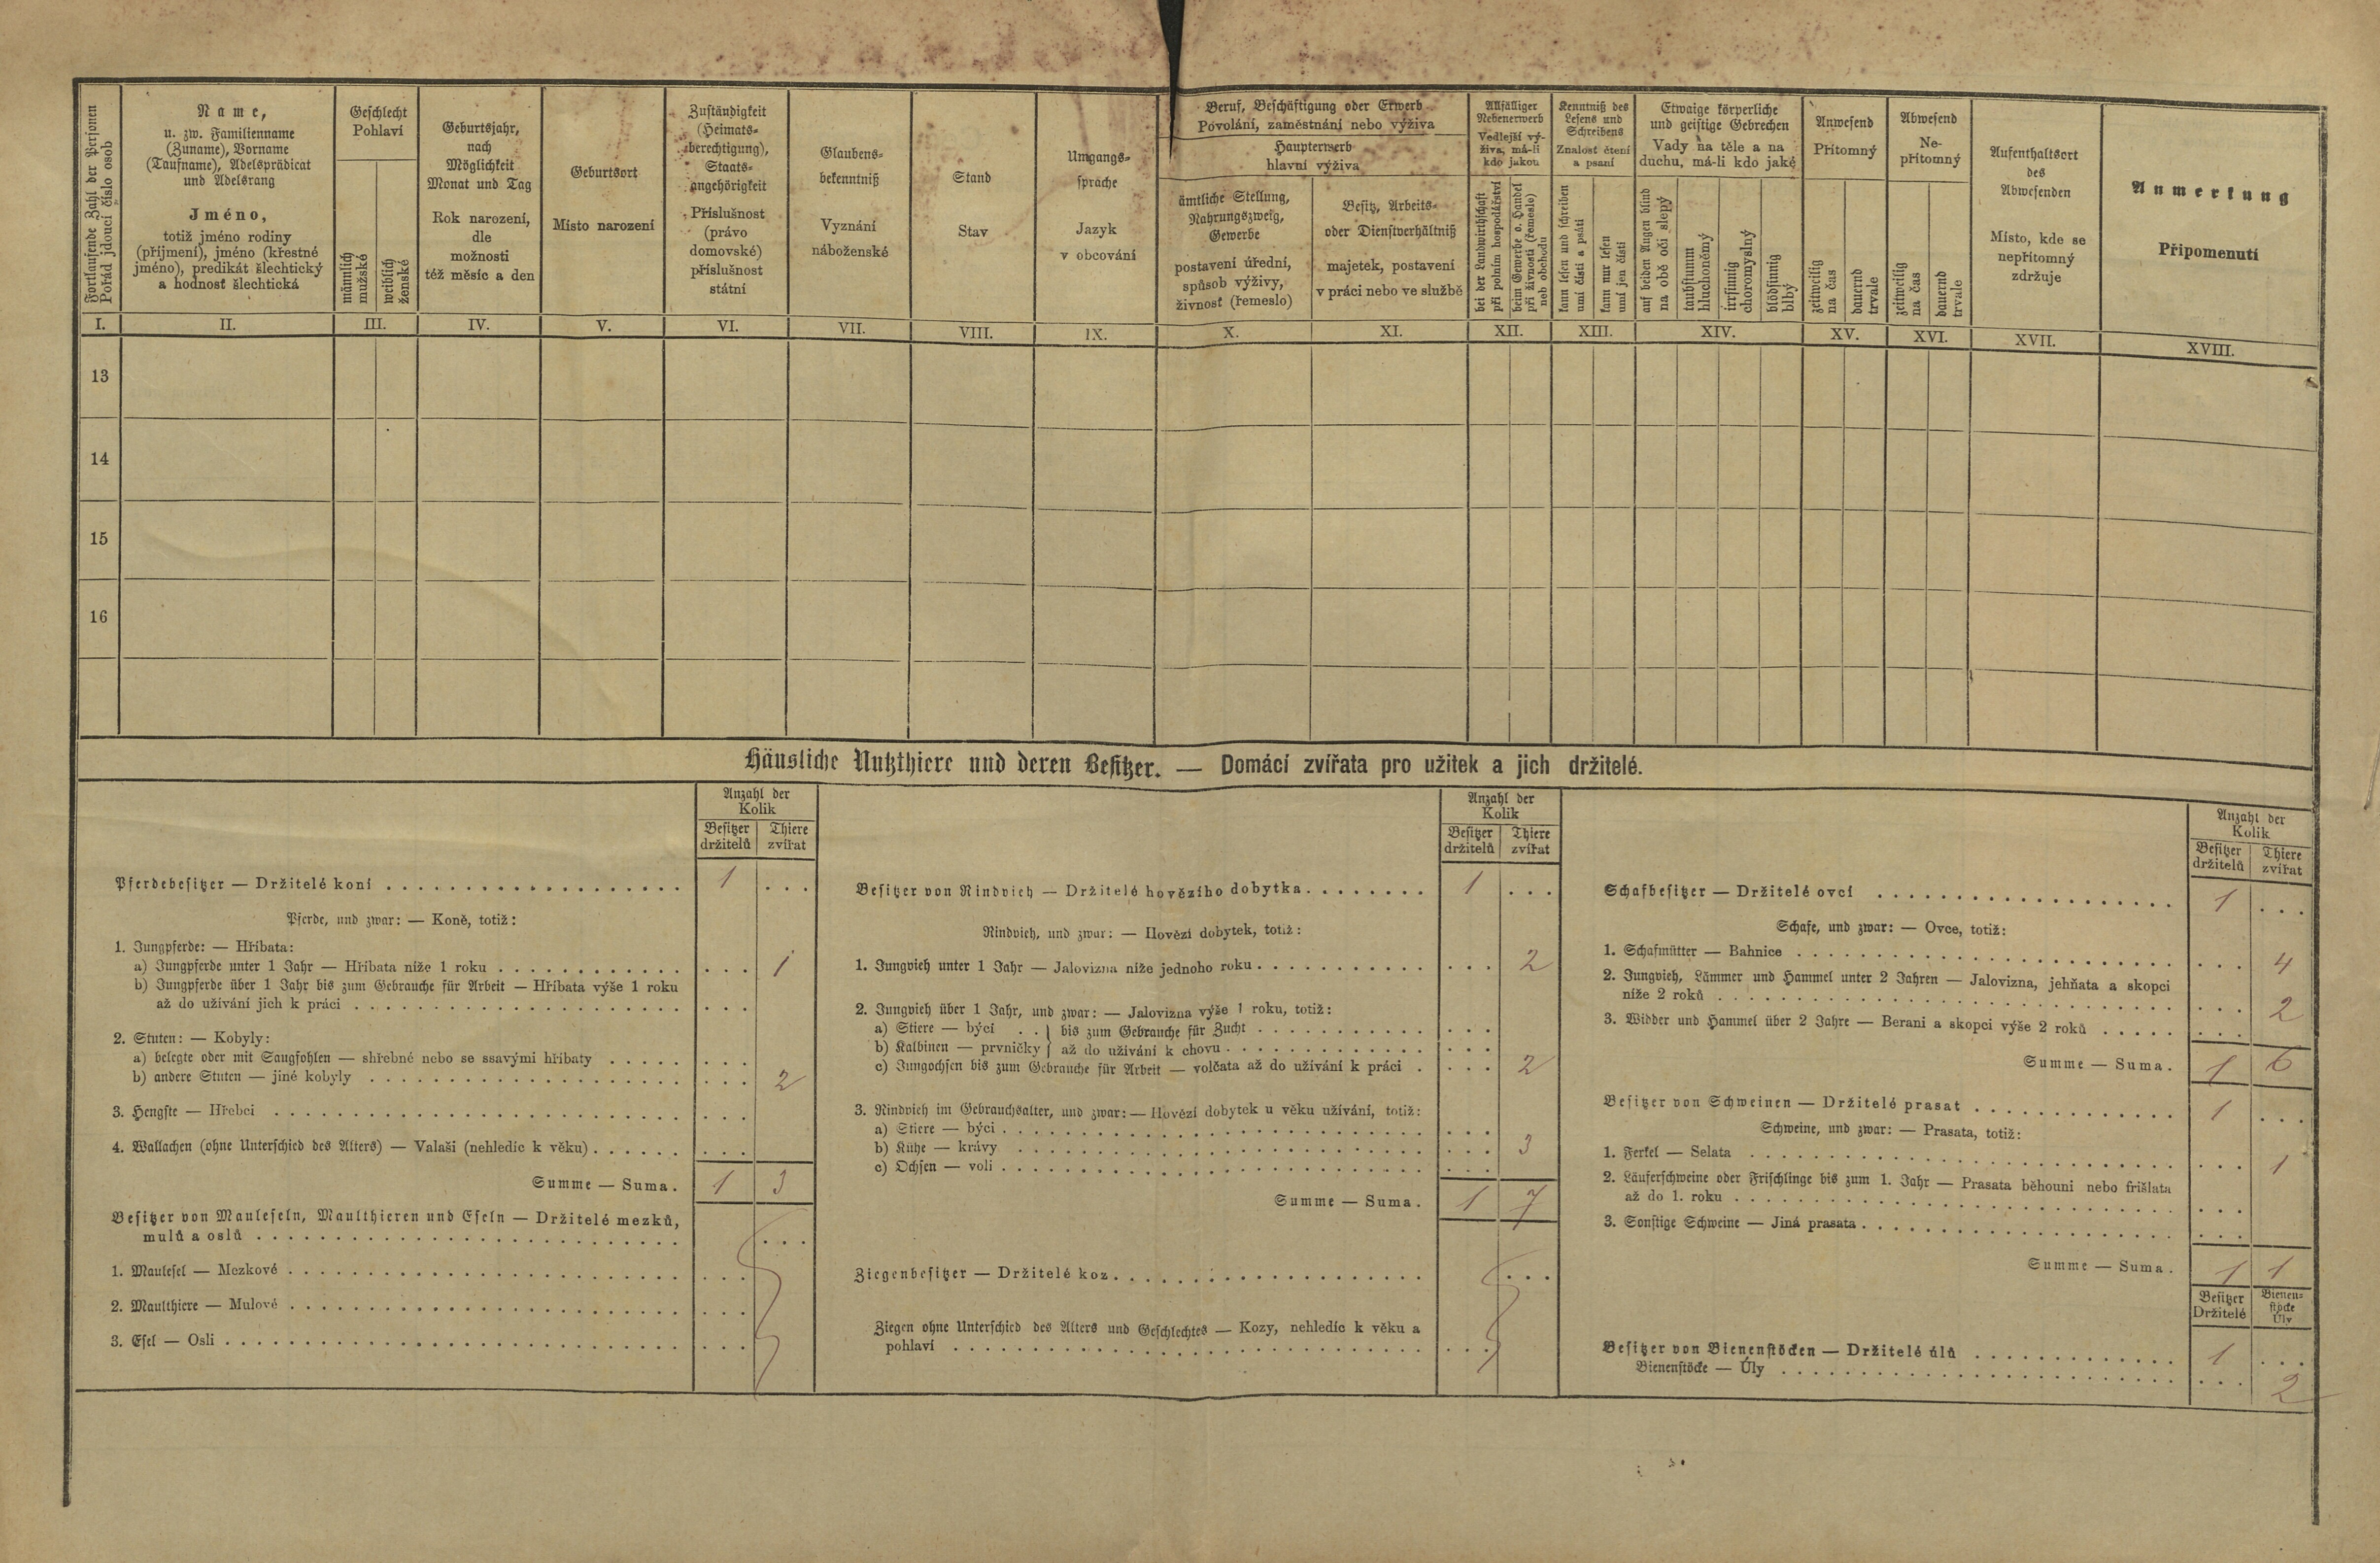 Fortlaufende Zahl der Personen
Pořád jdoucí číslo osob
Name,
u. zw. Familienname
(Zuname), Vorname
(Taufname), Adelsprädicat
und Adelsrang
Jméno,
totiž jméno rodiny
(příjmení), jméno (křestné
jméno), predikát šlechtický
a hodnosť šlechtická
Geschlecht
Pohlaví
männlich
mužské
weiblich
ženské
Geburtsjahr,
nach
Möglichkeit
Monat und Tag
Rok narození,
dle
možnosti
též měsíc a den
Geburtsort
Místo narození
Zuständigkeit
(Heimats-
berechtigung),
Staats-
angehörigkeit
Příslušnost
(právo
domovské)
příslušnost
státní
Glaubens-
bekenntniß
Vyznání
náboženské
Stand
Stav
Umgangs-
sprache
Jazyk
v obcování
Beruf, Beschäftigung oder Erwerb
Povolání, zaměstnání nebo výživa
Haupterwerb
hlavní výživa
ämtliche Stellung,
Nahrungszweig,
Gewerbe
postavení úřední,
spůsob výživy,
živnosť (řemeslo)
Besitz, Arbeits-
oder Dienstverhältniß
majetek, postavení
v práci nebo ve službě
Allfälliger
Nebenerwerb
Vedlejší vý-
živa, má-li
kdo jakou
bei der Landwirthschaft
při polním hospodářství
beim Gewerbe o. Handel
při živnosti (řemeslo)
neb obchodu
Kenntniß des
Lesens und
Schreibens
Znalosť čtení
a psaní
kann lesen und schreiben
umí čísti a psáti
kann nur lesen
umí jen čísti
Etwaige körperliche
und geistige Gebrechen
Vady na těle a na
duchu, má-li kdo jaké
auf beiden Augen blind
na obě oči slepý
taubstumm
hluchoněmý
irrsinnig
choromyslný
blödsinnig
blbý
Anwesend
Přítomný
zeitweilig
na čas
dauernd
trvale
Abwesend
Ne-
přítomný
zeitweilig
na čas
dauernd
trvale
Aufenthaltsort
des
Abwesenden
Místo, kde se
nepřítomný
zdržuje
Anmerkung
Připomenutí
I. II. III. IV. V. VI. VII. VIII. IX. X. XI. XII. XIII. XIV. XV. XVI. XVII. XVIII.
13
14
15
16
Häusliche Nutzthiere und deren Besitzer. — Domácí zvířata pro užitek a jich držitelé.
Anzahl der
Kolik
Besitzer Thiere
držitelů zvířat
Pferdebesitzer — Držitelé koní . . . 1 . . .
Pferde, und zwar: — Koně, totiž:
1. Jungpferde: — Hříbata:
a) Jungpferde unter 1 Jahr — Hříbata níže 1 roku . . . 1
b) Jungpferde über 1 Jahr bis zum Gebrauche für Arbeit — Hříbata výše 1 roku
až do užívání jich k práci . . .
2. Stuten: — Kobyly:
a) belegte oder mit Saugfohlen — shřebné nebo se ssavými hříbaty . . .
b) andere Stuten — jiné kobyly . . . 2
3. Hengste — Hřebci . . .
4. Wallachen (ohne Unterschied des Alters) — Valaši (nehledíc k věku) . . .
Summe — Suma. 1 3
Besitzer von Mauleseln, Maulthieren und Eseln — Držitelé mezků,
mulů a oslů . . .
1. Maulesel — Mezkové . . .
2. Maulthiere — Mulové . . .
3. Esel — Osli . . .
Anzahl der
Kolik
Besitzer Thiere
držitelů zvířat
Besitzer von Rindvieh — Držitelé hovězího dobytka . . . 1 . . .
Rindvieh, und zwar: — Hovězí dobytek, totiž:
1. Jungvieh unter 1 Jahr — Jalovizna níže jednoho roku . . . 2
2. Jungvieh über 1 Jahr, und zwar: — Jalovizna výše 1 roku, totiž:
a) Stiere — býci . . } bis zum Gebrauche für Zucht . . .
b) Kalbinen — prvničky } až do užívání k chovu . . .
c) Jungochsen bis zum Gebrauche für Arbeit — volčata až do užívání k práci . . . . 2
3. Rindvieh im Gebrauchsalter, und zwar: — Hovězí dobytek u věku užívání, totiž:
a) Stiere — býci . . .
b) Kühe — krávy . . . 3
c) Ochsen — voli . . .
Summe — Suma. 1 7
Ziegenbesitzer — Držitelé koz . . .
Ziegen ohne Unterschied des Alters und Geschlechtes — Kozy, nehledíc k věku a
pohlaví . . .
Anzahl der
Kolik
Besitzer Thiere
držitelů zvířat
Schafbesitzer — Držitelé ovcí . . . 1 . . .
Schafe, und zwar: — Ovce, totiž:
1. Schafmütter — Bahnice . . . 4
2. Jungvieh, Lämmer und Hammel unter 2 Jahren — Jalovizna, jehňata a skopci
níže 2 roků . . . 2
3. Widder und Hammel über 2 Jahre — Berani a skopci výše 2 roků . . .
Summe — Suma. 1 6
Besitzer von Schweinen — Držitelé prasat . . . 1 . . .
Schweine, und zwar: — Prasata, totiž:
1. Ferkel — Selata . . . 1
2. Läuferschweine oder Frischlinge bis zum 1. Jahr — Prasata běhouni nebo frišlata
až do 1. roku . . .
3. Sonstige Schweine — Jiná prasata . . .
Summe — Suma. 1 1
Besitzer Bienen-
Držitelé stöcke
Úly
Besitzer von Bienenstöcken — Držitelé úlů . . . 1 . . .
Bienenstöcke — Úly . . . 2